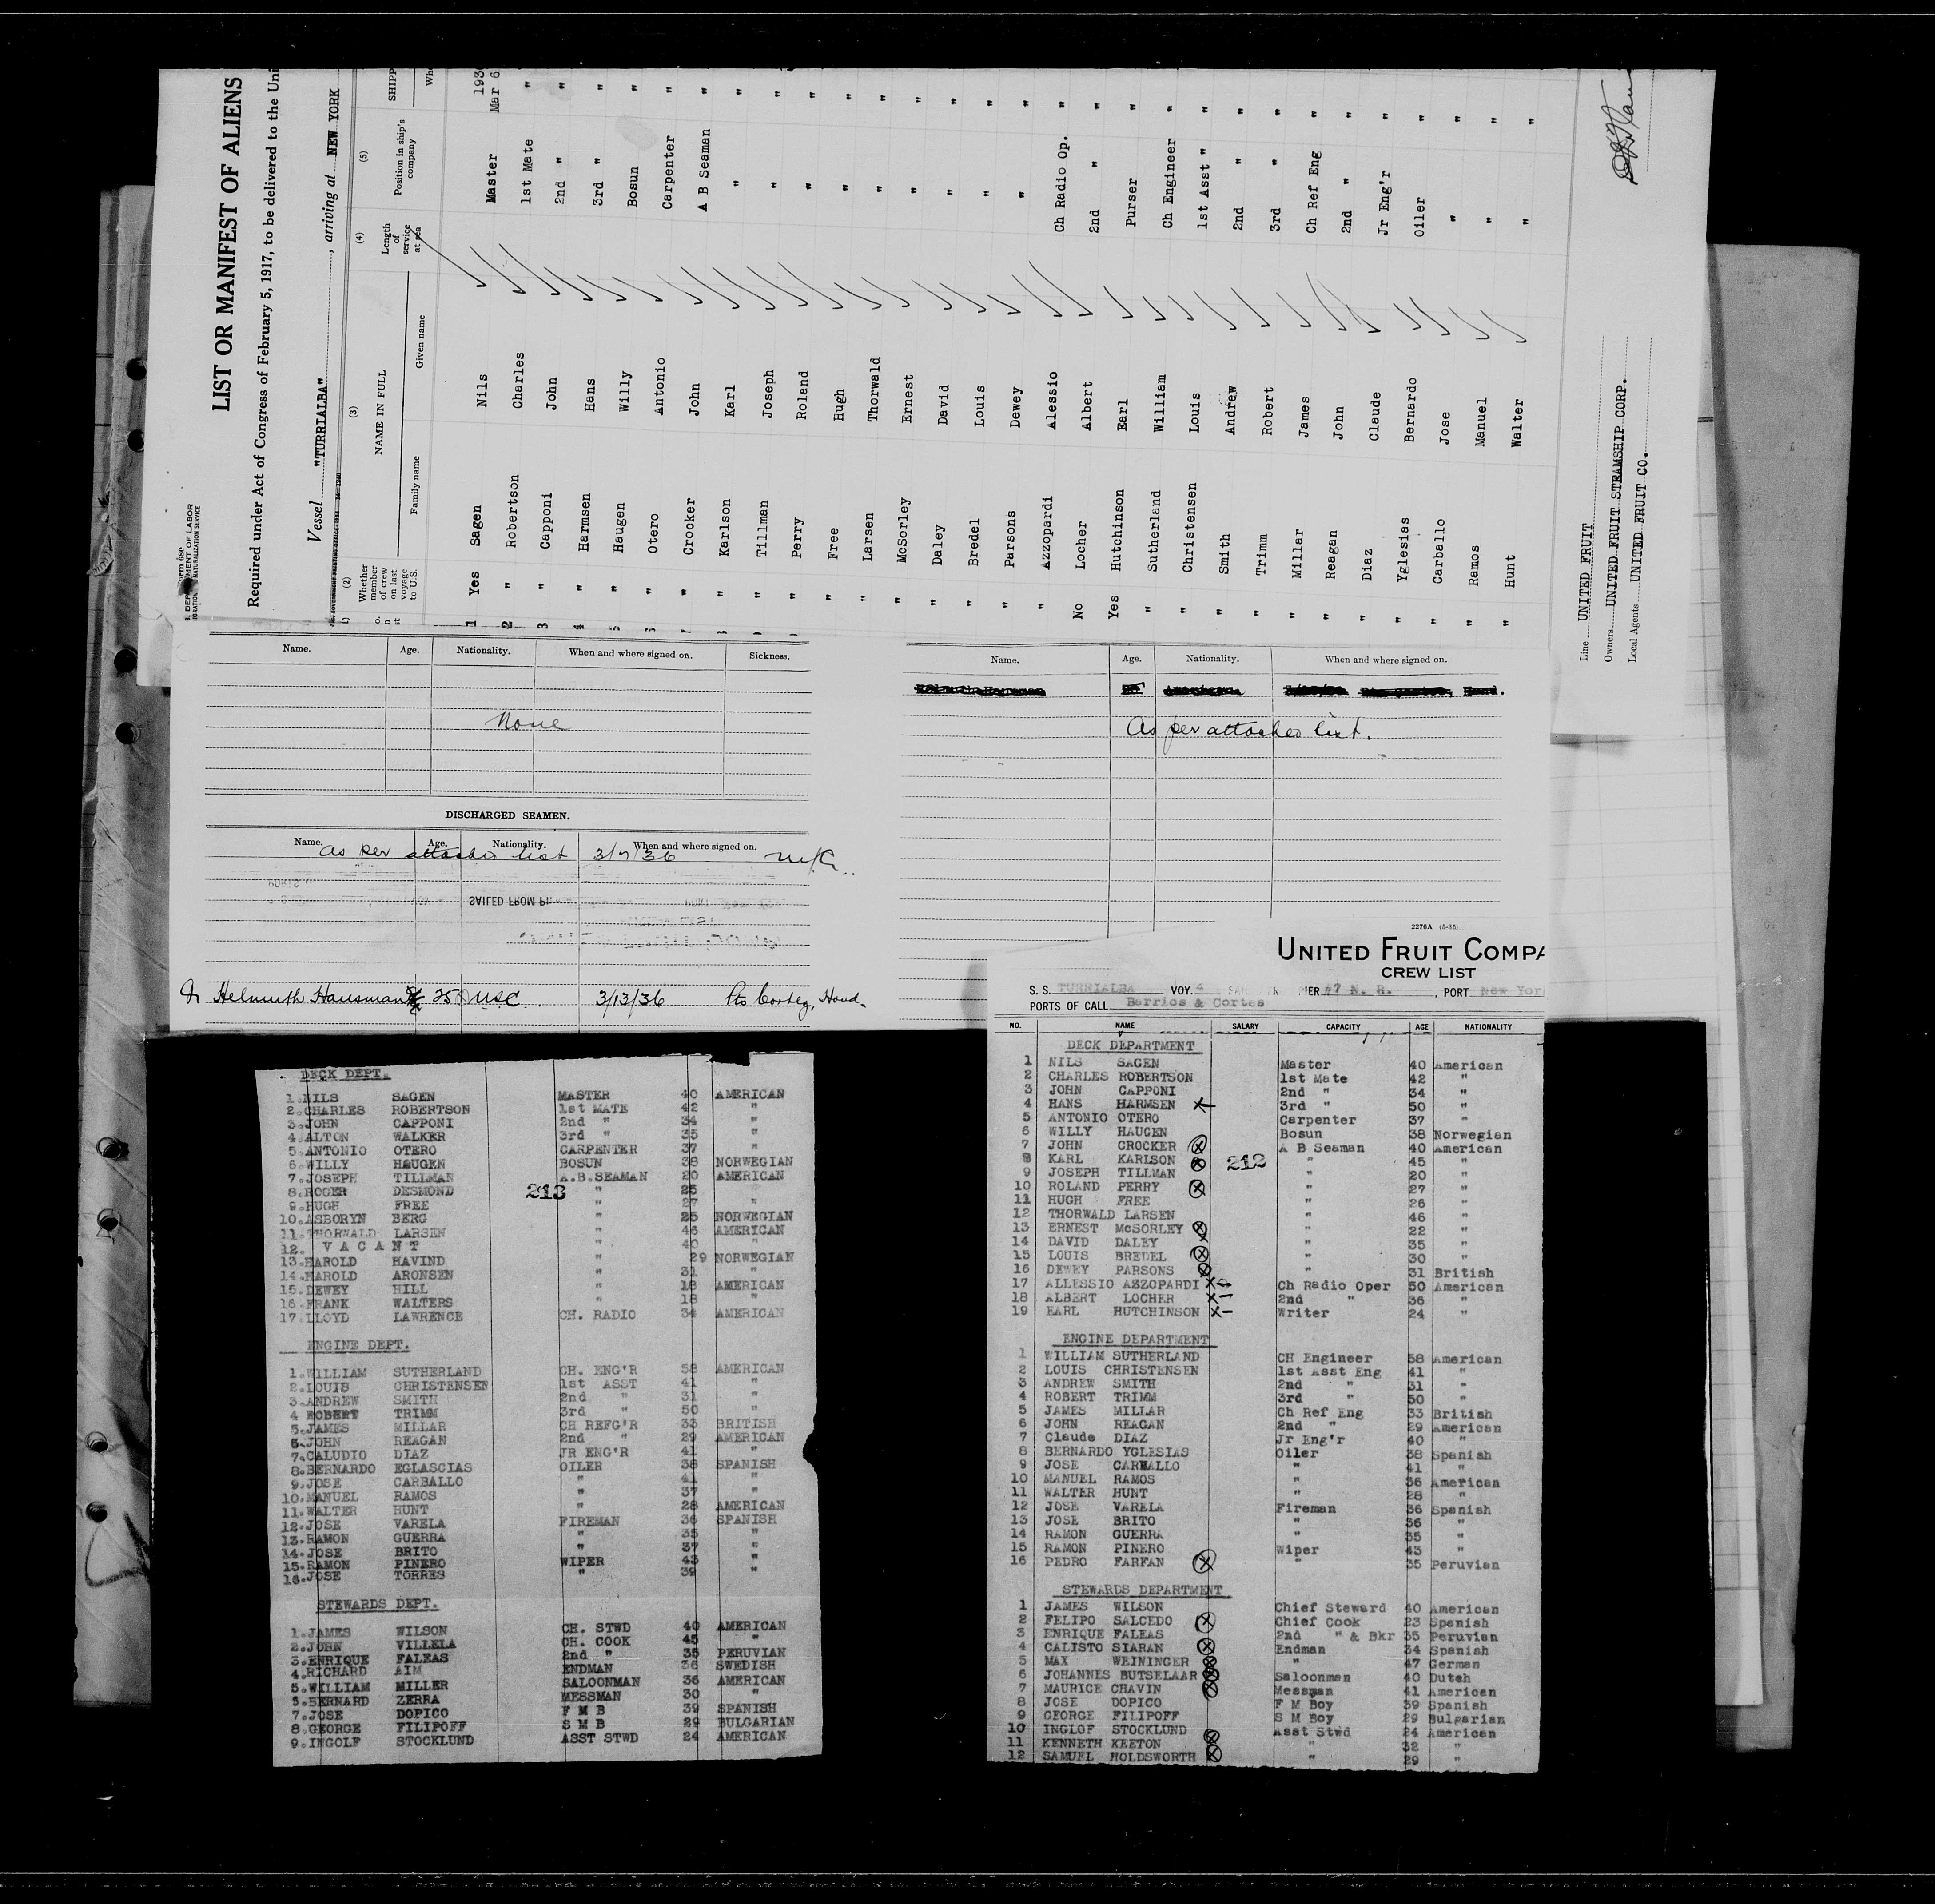 LIST OR MANIFEST OF ALIENS
Required under Act of Congress of February 5, 1917, to be delivered to the Uni
Vessel "TURRIALBA", arriving at NEW YORK
(2) (3) (4) (5)
Whether member of crew on last voyage to U.S. NAME IN FULL Length of service at sea Position in ship's company SHIPP
Family name Given name Whe
193
1 Yes Sagen Nils Master Mar 6
2 " Robertson Charles 1st Mate "
3 " Capponi John 2nd " "
4 " Harmsen Hans 3rd " "
" Haugen Willy Bosun "
" Otero Antonio Carpenter "
" Crocker John A B Seaman "
" Karlson Karl " "
" Tillman Joseph " "
" Perry Roland " "
" Free Hugh " "
" Larsen Thorwald " "
" McSorley Ernest " "
" Daley David " "
" Bredel Louis " "
" Parsons Dewey " "
" Azzopardi Alessio Ch Radio Op. "
No Locher Albert 2nd " "
Yes Hutchinson Earl Purser "
" Sutherland William Ch Engineer "
" Christensen Louis 1st Asst " "
" Smith Andrew 2nd " "
" Trimm Robert 3rd " "
" Millar James Ch Ref Eng "
" Reagan John 2nd " "
" Diaz Claude Jr Eng'r "
" Yglesias Bernardo Oiler "
" Carballo Jose " "
" Ramos Manuel " "
" Hunt Walter " "
Line UNITED FRUIT
Owners UNITED FRUIT STEAMSHIP CORP.
Local Agents UNITED FRUIT CO.
Name. Age. Nationality. When and where signed on. Sickness.
None
DISCHARGED SEAMEN.
Name. Age. Nationality. When and where signed on.
As per attached list 3/7/36
SAILED FROM
Helmuth Hausman 25 USC 3/13/36 Pto Cortez, Hond.
Name. Age. Nationality. When and where signed on.
Hond.
As per attached list.
DECK DEPT.
1. NILS SAGEN MASTER 40 AMERICAN
2. CHARLES ROBERTSON 1st MATE 42 "
3. JOHN CAPPONI 2nd " 34 "
4. ALTON WALKER 3rd " 35 "
5. ANTONIO OTERO CARPENTER 37 "
6. WILLY HAUGEN BOSUN 38 NORWEGIAN
7. JOSEPH TILLMAN A.B.SEAMAN 20 AMERICAN
8. ROGER DESMOND 213 " 25 "
9. HUGH FREE " 27 "
10. ASBORYN BERG " 25 NORWEGIAN
11. THORWALD LARSEN " 46 AMERICAN
12. V A C A N T " 40 "
13. HAROLD HAVIND " 29 NORWEGIAN
14. HAROLD ARONSEN " 31 "
15. DEWEY HILL " 18 AMERICAN
16. FRANK WALTERS " 18 "
17. LLOYD LAWRENCE CH. RADIO 34 AMERICAN
ENGINE DEPT.
1. WILLIAM SUTHERLAND CH. ENG'R 58 AMERICAN
2. LOUIS CHRISTENSEN 1st ASST 41 "
3. ANDREW SMITH 2nd. " 31 "
4 ROBERT TRIMM 3rd " 50 "
5. JAMES MILLAR CH REFG'R 33 BRITISH
6. JOHN REAGAN 2nd " 29 AMERICAN
7. CALUDIO DIAZ JR ENG'R 41 "
8. BERNARDO EGLASCIAS OILER 38 SPANISH
9. JOSE CARBALLO " 41 "
10. MANUEL RAMOS " 37 "
11. WALTER HUNT " 28 AMERICAN
12. JOSE VARELA FIREMAN 36 SPANISH
13. RAMON GUERRA " 35 "
14. JOSE BRITO " 37 "
15. RAMON PINERO WIPER 43 "
16. JOSE TORRES " 39 "
STEWARDS DEPT.
1. JAMES WILSON CH. STWD 40 AMERICAN
2. JOHN VILLELA CH. COOK 45 "
3. ENRIQUE FALEAS 2nd " 35 PERUVIAN
4. RICHARD AIM ENDMAN 36 SWEDISH
5. WILLIAM MILLER SALOONMAN 36 AMERICAN
BERNARD ZERRA MESSMAN 30 "
7. JOSE DOPICO F M B 39 SPANISH
8. GEORGE FILIPOFF S M B 29 BULGARIAN
9. INGOLF STOCKLUND ASST STWD 24 AMERICAN
2276A (5-35)
UNITED FRUIT COMPA
CREW LIST
S. S. TURRIALBA VOY. 4 PIER 47 N. R. , PORT New Yor
PORTS OF CALL Barrios & Cortes
NO. NAME SALARY CAPACITY AGE NATIONALITY
DECK DEPARTMENT
1 NILS SAGEN Master 40 American
2 CHARLES ROBERTSON 1st Mate 42 "
3 JOHN CAPPONI 2nd " 34 "
4 HANS HARMSEN 3rd " 50 "
5 ANTONIO OTERO Carpenter 37 "
6 WILLY HAUGEN Bosun 38 Norwegian
7 JOHN CROCKER A B Seaman 40 American
8 KARL KARLSON 212 " 45 "
9 JOSEPH TILLMAN " 20 "
10 ROLAND PERRY " 27 "
11 HUGH FREE " 26 "
12 THORWALD LARSEN " 46 "
13 ERNEST McSORLEY " 22 "
14 DAVID DALEY " 35 "
15 LOUIS BREDEL " 30 "
16 DEWEY PARSONS " 31 British
17 ALLESSIO AZZOPARDI Ch Radio Oper 50 American
18 ALBERT LOCHER 2nd " 36 "
19 EARL HUTCHINSON Writer 24 "
ENGINE DEPARTMENT
1 WILLIAM SUTHERLAND CH Engineer 58 American
2 LOUIS CHRISTENSEN 1st Asst Eng 41 "
3 ANDREW SMITH 2nd " 31 "
4 ROBERT TRIMM 3rd " 50 "
5 JAMES MILLAR Ch Ref Eng 33 British
6 JOHN REAGAN 2nd " 29 American
7 Claude DIAZ Jr Eng'r 40 "
8 BERNARDO YGLESIAS Oiler 38 Spanish
9 JOSE CARBALLO " 41 "
10 MANUEL RAMOS " 36 American
11 WALTER HUNT " 28 "
12 JOSE VARELA Fireman 36 Spanish
13 JOSE BRITO " 36 "
14 RAMON GUERRA " 35 "
15 RAMON PINERO Wiper 43 "
16 PEDRO FARFAN " 35 Peruvian
STEWARDS DEPARTMENT
1 JAMES WILSON Chief Steward 40 American
2 FELIPO SALCEDO Chief Cook 23 Spanish
3 ENRIQUE FALEAS 2nd " & Bkr 35 Peruvian
4 CALISTO SIARAN Endman 34 Spanish
5 MAX WEININGER " 47 German
6 JOHANNES BUTSELAAR Saloonman 40 Dutch
7 MAURICE CHAVIN Messman 41 American
8 JOSE DOPICO F M Boy 39 Spanish
9 GEORGE FILIPOFF S M Boy 29 Bulgarian
10 INGLOF STOCKLUND Asst Stwd 24 American
11 KENNETH KEETON " 32 "
12 SAMUEL HOLDSWORTH " 29 "